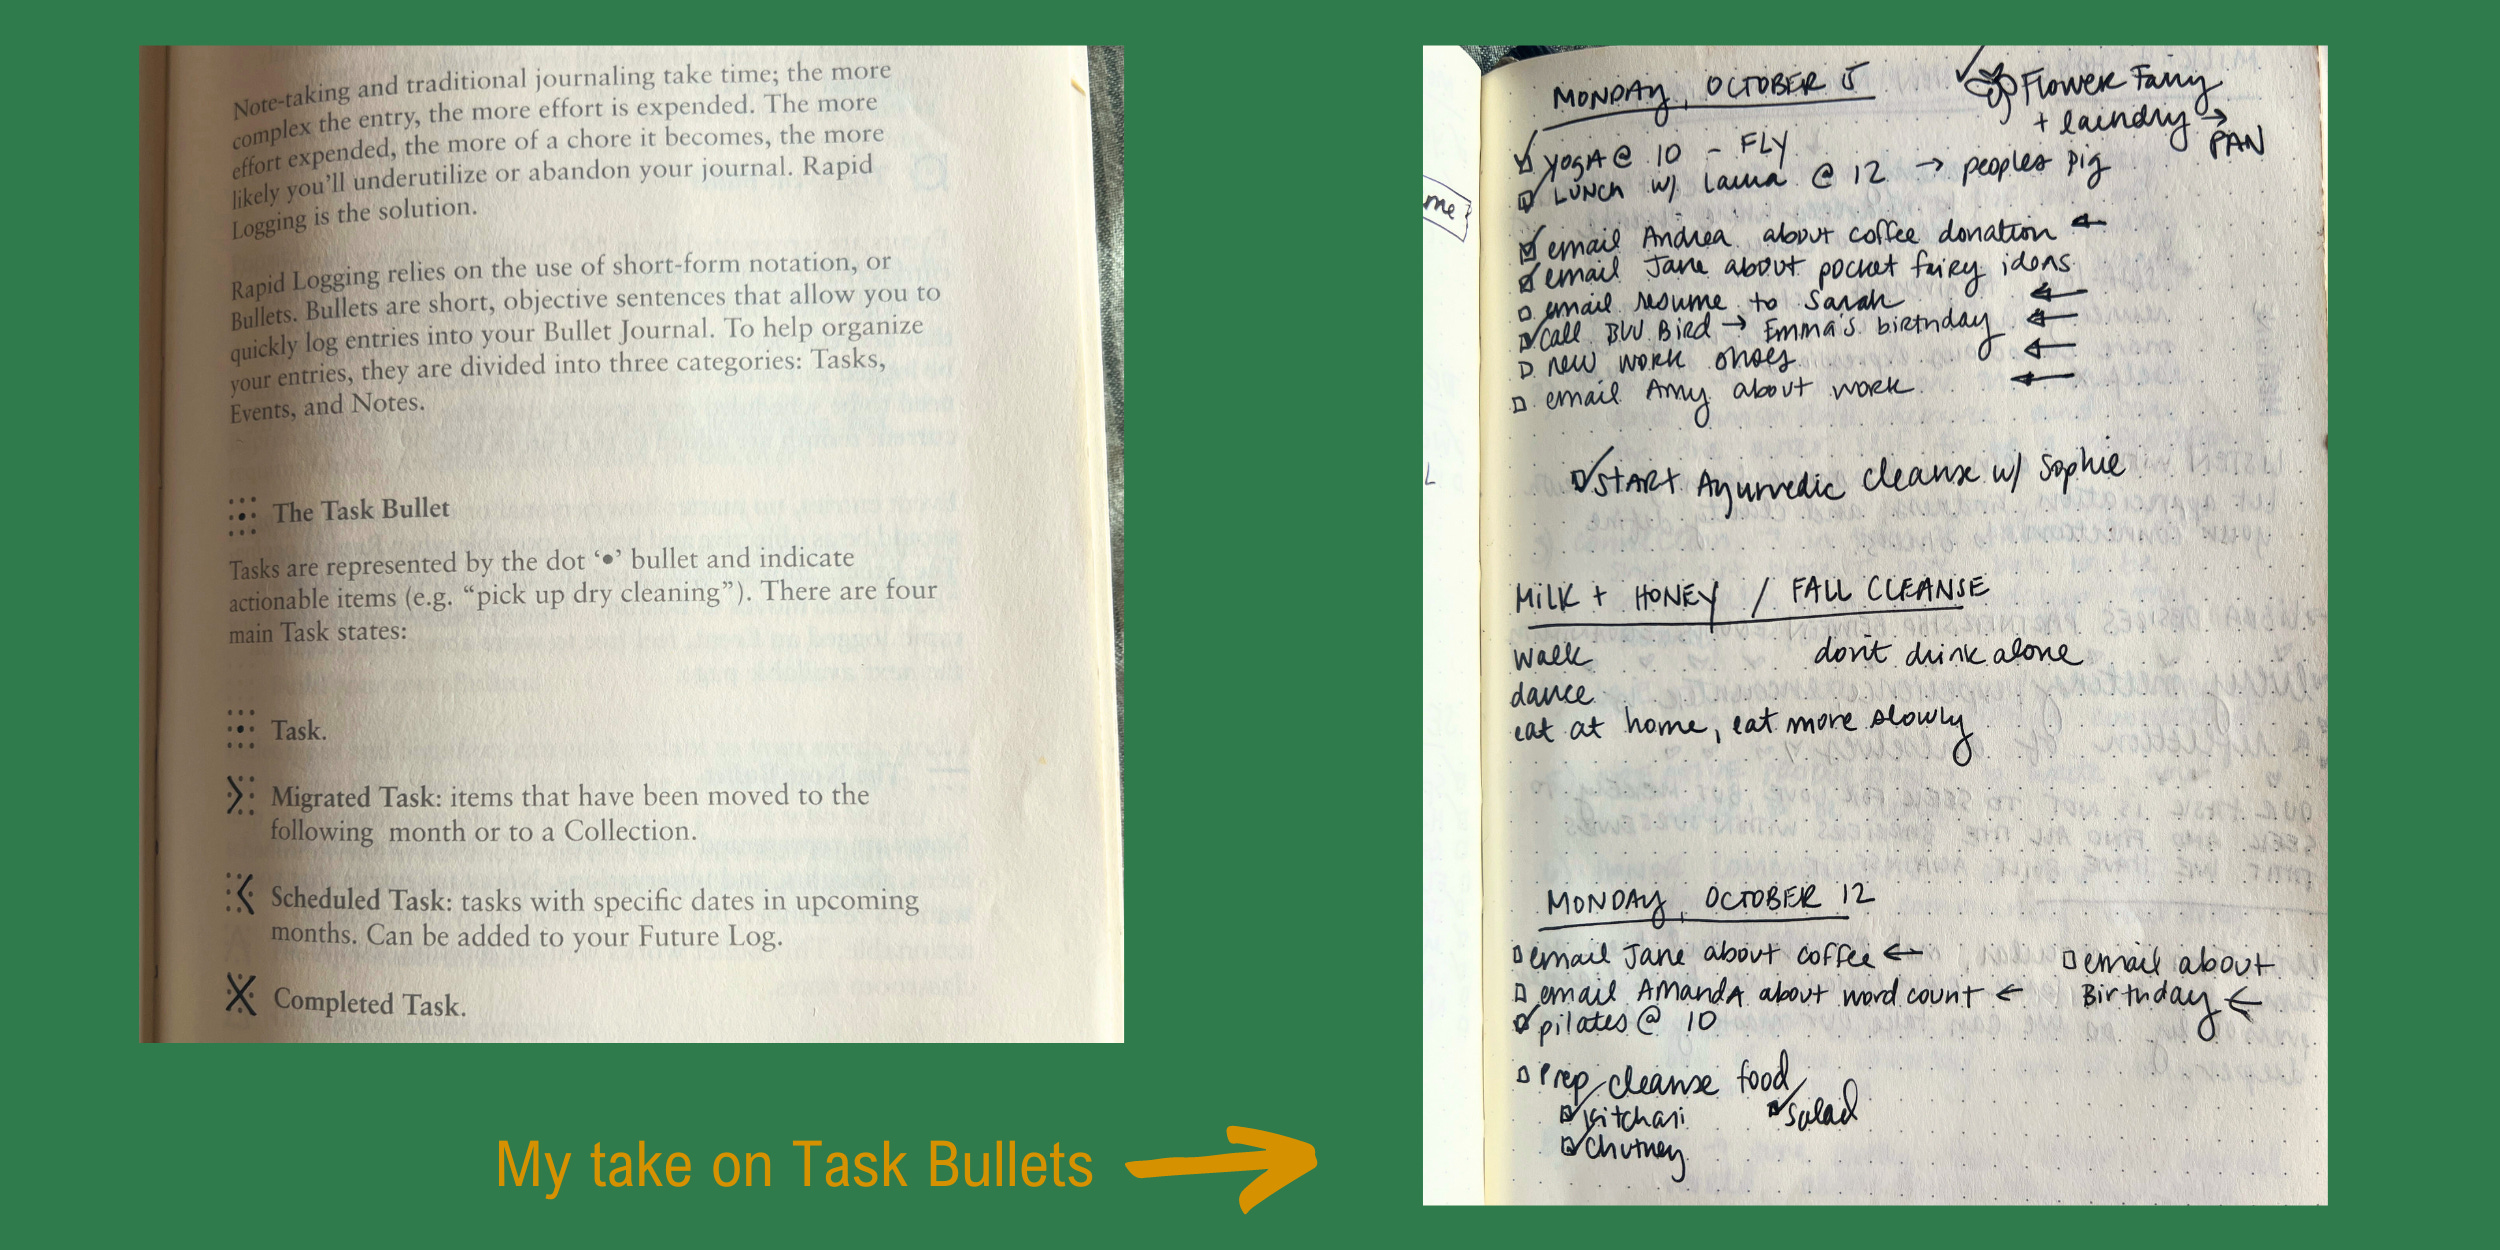 Note-taking and traditional journaling take time; the more
complex the entry, the more effort is expended. The more
effort expended, the more of a chore it becomes, the more
likely you'll underutilize or abandon your journal. Rapid
Logging is the solution.
Rapid Logging relies on the use of short-form notation, or
Bullets. Bullets are short, objective sentences that allow you to
quickly log entries into your Bullet Journal. To help organize
your entries, they are divided into three categories: Tasks,
Events, and Notes.
The Task Bullet
Tasks are represented by the dot ‘•’ bullet and indicate
actionable items (e.g. “pick up dry cleaning”). There are four
main Task states:
Task.
Migrated Task: items that have been moved to the
following month or to a Collection.
Scheduled Task: tasks with specific dates in upcoming
months. Can be added to your Future Log.
Completed Task.
My take on Task Bullets
me?
MONDAY, OCTOBER 5
Flower Fairy
+ laundry →
PAN
yogA @ 10 - FLY
LUNCH w/ Laura @ 12 → peoples pig
email Andrea about coffee donation ←
email Jane about pocket fairy ideas
email resume to Sarah ←
Call BLU Bird → Emma's birthday ←
new work shoes ←
email Amy about work ←
START Ayurvedic cleanse w/ Sophie
MILK + HONEY / FALL CLEANSE
walk
don't drink alone
dance
eat at home, eat more slowly
MONDAY, OCTOBER 12
email Jane about coffee ←
email AMANDA about word count ←
pilates @ 10
email about
Birthday ←
Prep cleanse food
kitchari
salad
chutney